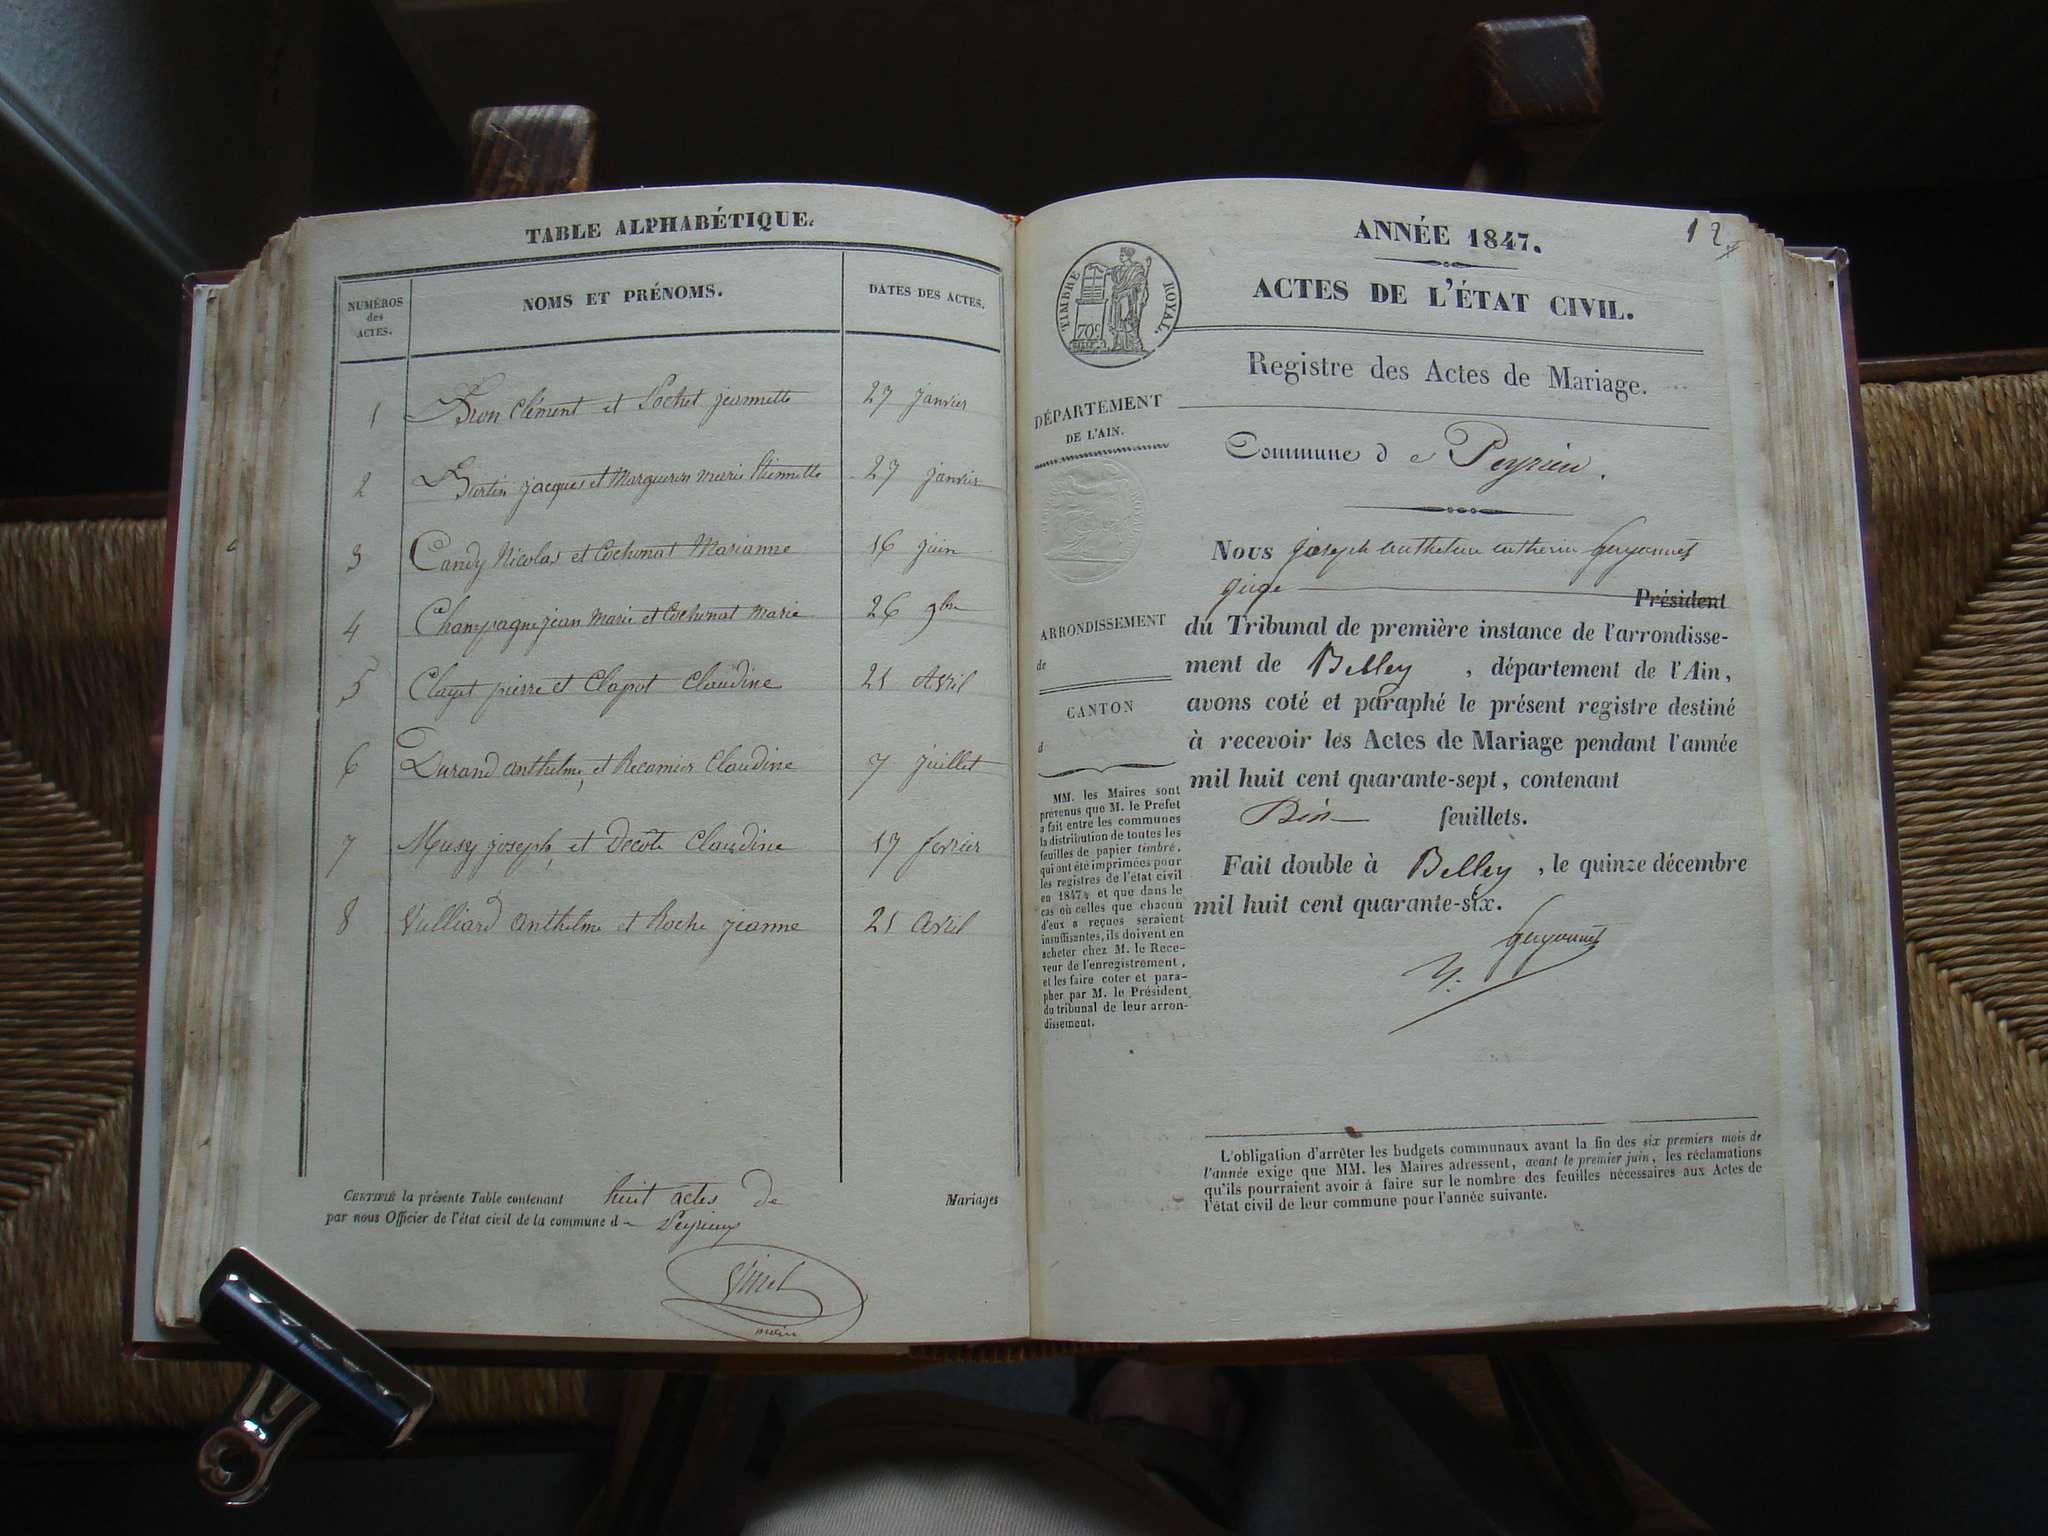 TABLE ALPHABÉTIQUE.
NUMÉROS des ACTES.
NOMS ET PRÉNOMS.
DATES DES ACTES.
1 Bron Clément et Pochet jeannette 27 janvier
2 Burtin jacques et Margueron marie Etiennette 27 janvier
3 Candy Nicolas et Cochonat Marianne 16 juin
4 Champagne jean marie et Cochonat Marie 26 9bre
5 Clayet pierre et Clapot Claudine 21 Avril
6 Durand anthelme et Recamier Claudine 7 juillet
7 Musy joseph et Decote Claudine 17 fevrier
8 Vulliard anthelme et Roche jeanne 21 avril
CERTIFIÉ la présente Table contenant huit actes de Mariages
par nous Officier de l'état civil de la commune de Peyrieux
maire
12
ANNÉE 1847.
TIMBRE ROYAL.
70c
ACTES DE L'ÉTAT CIVIL.
Registre des Actes de Mariage.
DÉPARTEMENT
DE L'AIN.
Commune de Peyrieu.
Nous joseph anthelme
juge Président
ARRONDISSEMENT
de
CANTON
d
du Tribunal de première instance de l'arrondisse-
ment de Belley, département de l'Ain,
avons coté et paraphé le présent registre destiné
à recevoir les Actes de Mariage pendant l'année
mil huit cent quarante-sept, contenant
feuillets.
Fait double à Belley, le quinze décembre
mil huit cent quarante-six.
MM. les Maires sont
prévenus que M. le Préfet
a fait entre les communes
la distribution de toutes les
feuilles de papier timbré,
qui ont été imprimées pour
les registres de l'état civil
en 1847, et que dans le
cas où celles que chacun
d'eux a reçues seraient
insuffisantes, ils doivent en
acheter chez M. le Rece-
veur de l'enregistrement,
et les faire coter et para-
pher par M. le Président
du tribunal de leur arron-
dissement.
L'obligation d'arrêter les budgets communaux avant la fin des six premiers mois de
l'année exige que MM. les Maires adressent, avant le premier juin, les réclamations
qu'ils pourraient avoir à faire sur le nombre des feuilles nécessaires aux Actes de
l'état civil de leur commune pour l'année suivante.